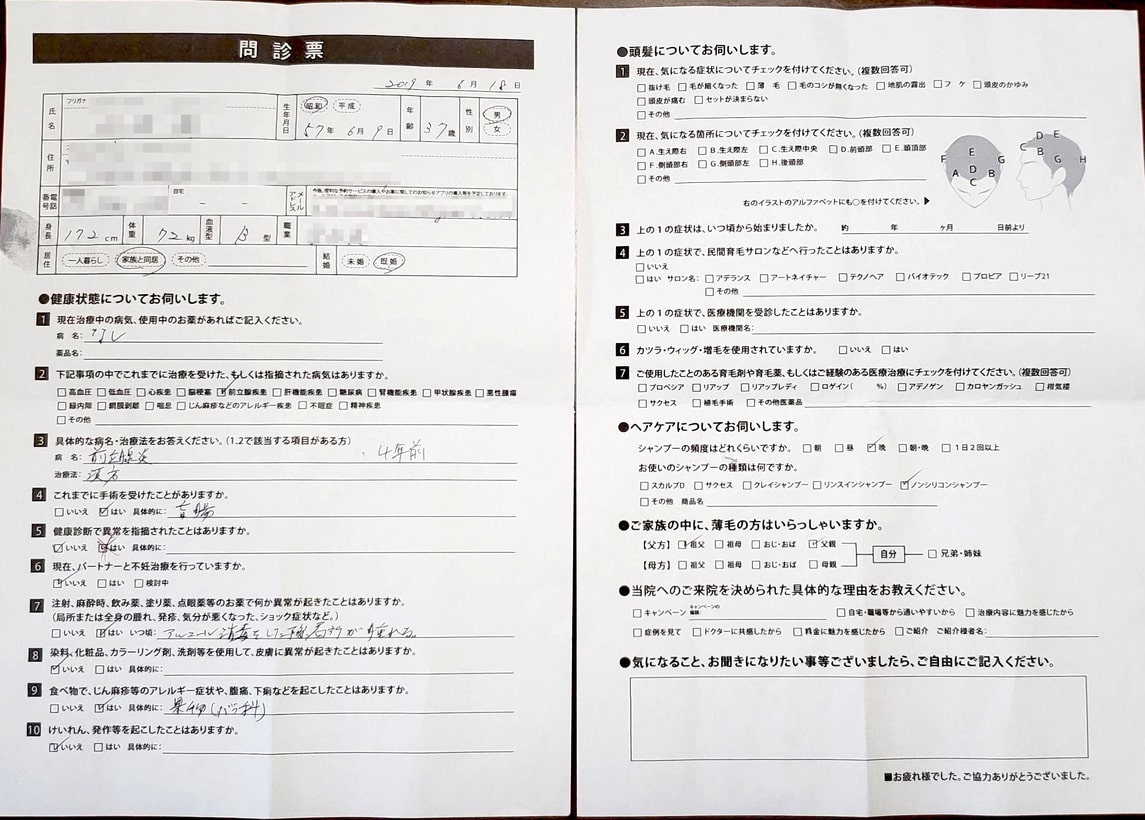 問診票
2019年 6月 18日
フリガナ
氏名
生年月日 昭和 平成
57年 6月 9日
年齢 37歳
性別 男 女
住所
電話番号
自宅 - -
メールアドレス
今後、便利な予約サービスの導入やお薬に関してのお知らせアプリの導入等を予定しております。
身長 172cm 体重 72kg 血液型 B型 職業
居住 一人暮らし 家族と同居 その他 結婚 未婚 既婚
●健康状態についてお伺いします。
1 現在治療中の病気、使用中のお薬があればご記入ください。
病 名: なし
薬品名:
2 下記事項の中でこれまでに治療を受けた、もしくは指摘された病気はありますか。
□高血圧 □低血圧 □心疾患 □脳梗塞 ☑前立腺疾患 □肝機能疾患 □糖尿病 □腎機能疾患 □甲状腺疾患 □悪性腫瘍
□緑内障 □網膜剥離 □喘息 □じん麻疹などのアレルギー疾患 □不眠症 □精神疾患
□その他
3 具体的な病名・治療法をお答えください。(1.2で該当する項目がある方)
病 名: 前立腺炎 ・4年前
治療法: 漢方
4 これまでに手術を受けたことがありますか。
□いいえ ☑はい 具体的に: 盲腸
5 健康診断で異常を指摘されたことはありますか。
☑いいえ ☑はい 具体的に:
6 現在、パートナーと不妊治療を行っていますか。
☑いいえ □はい □検討中
7 注射、麻酔時、飲み薬、塗り薬、点眼薬等のお薬で何か異常が起きたことはありますか。
(局所または全身の腫れ、発疹、気分が悪くなった、ショック症状など。)
□いいえ ☑はい いつ頃: アルコール消毒をした際、局所が腫れる。
8 染料、化粧品、カラーリング剤、洗剤等を使用して、皮膚に異常が起きたことはありますか。
☑いいえ □はい 具体的に:
9 食べ物で、じん麻疹等のアレルギー症状や、腹痛、下痢などを起こしたことはありますか。
□いいえ ☑はい 具体的に: 果物(バラ科)
10 けいれん、発作等を起こしたことはありますか。
☑いいえ □はい 具体的に:
●頭髪についてお伺いします。
1 現在、気になる症状についてチェックを付けてください。(複数回答可)
□抜け毛 □毛が細くなった □薄 毛 □毛のコシが無くなった □地肌の露出 □フ ケ □頭皮のかゆみ
□頭皮が痛む □セットが決まらない
□その他
2 現在、気になる箇所についてチェックを付けてください。(複数回答可)
□A.生え際右 □B.生え際左 □C.生え際中央 □D.前頭部 □E.頭頂部
□F.側頭部右 □G.側頭部左 □H.後頭部
□その他
右のイラストのアルファベットにも○を付けてください。▶
E F G D A B C
D E C B G H
3 上の1の症状は、いつ頃から始まりましたか。 約 年 ヶ月 日前より
4 上の1の症状で、民間育毛サロンなどへ行ったことはありますか。
□いいえ
□はい サロン名: □アデランス □アートネイチャー □テクノヘア □バイオテック □プロピア □リーブ21
□その他
5 上の1の症状で、医療機関を受診したことはありますか。
□いいえ □はい 医療機関名:
6 カツラ・ウィッグ・増毛を使用されていますか。 □いいえ □はい
7 ご使用したことのある育毛剤や育毛薬、もしくはご経験のある医療治療にチェックを付けてください。(複数回答可)
□プロペシア □リアップ □リアップレディ □ロゲイン( %) □アデノゲン □カロヤンガッシュ □柑気楼
□サクセス □植毛手術 □その他医薬品
●ヘアケアについてお伺いします。
シャンプーの頻度はどれくらいですか。 □朝 □昼 ☑晩 □朝・晩 □1日2回以上
お使いのシャンプーの種類は何ですか。
□スカルプD □サクセス □クレイシャンプー □リンスインシャンプー ☑ノンシリコンシャンプー
□その他 商品名
●ご家族の中に、薄毛の方はいらっしゃいますか。
【父方】 ☑祖父 □祖母 □おじ・おば ☑父親
自分 □兄弟・姉妹
【母方】 □祖父 □祖母 □おじ・おば □母親
●当院へのご来院を決められた具体的な理由をお教えください。
□キャンペーン キャンペーンの種類: □自宅・職場等から通いやすいから □治療内容に魅力を感じたから
□症例を見て □ドクターに共感したから □料金に魅力を感じたから □ご紹介 ご紹介様者名:
●気になること、お聞きになりたい事等ございましたら、ご自由にご記入ください。
■お疲れ様でした。ご協力ありがとうございました。